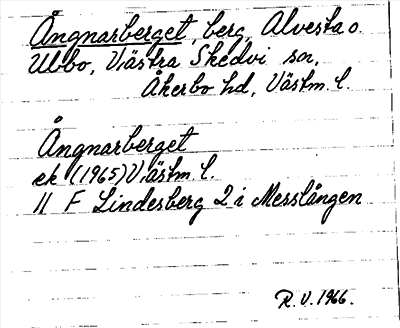 Ångnarberget, berg, Alvesta o.
Ubbo, Västra Skedvi sn,
Åkerbo hd, Västm. l.
Ångnarberget
ek (1965) Västm. l.
11 F Lindesberg 2 i Messlången
R.V. 1966.